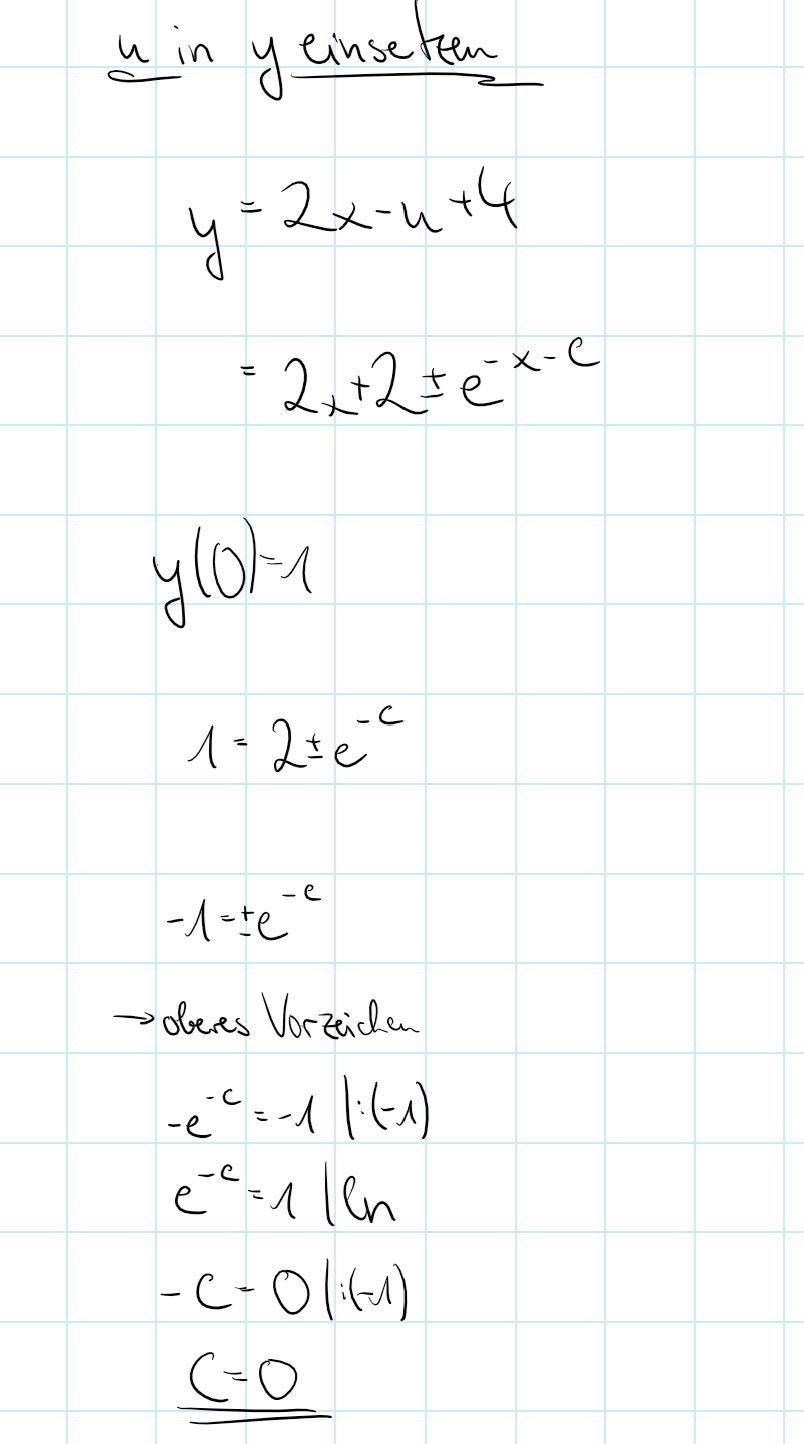 u in y einsetzen
y = 2x-u+4
= 2x+2±e^{-x-c}
y(0)=1
1 = 2±e^{-c}
-1=±e^{-c}
→oberes Vorzeichen
-e^{-c}=-1 |:(-1)
e^{-c}=1 |ln
-c=0 |:(-1)
c=0